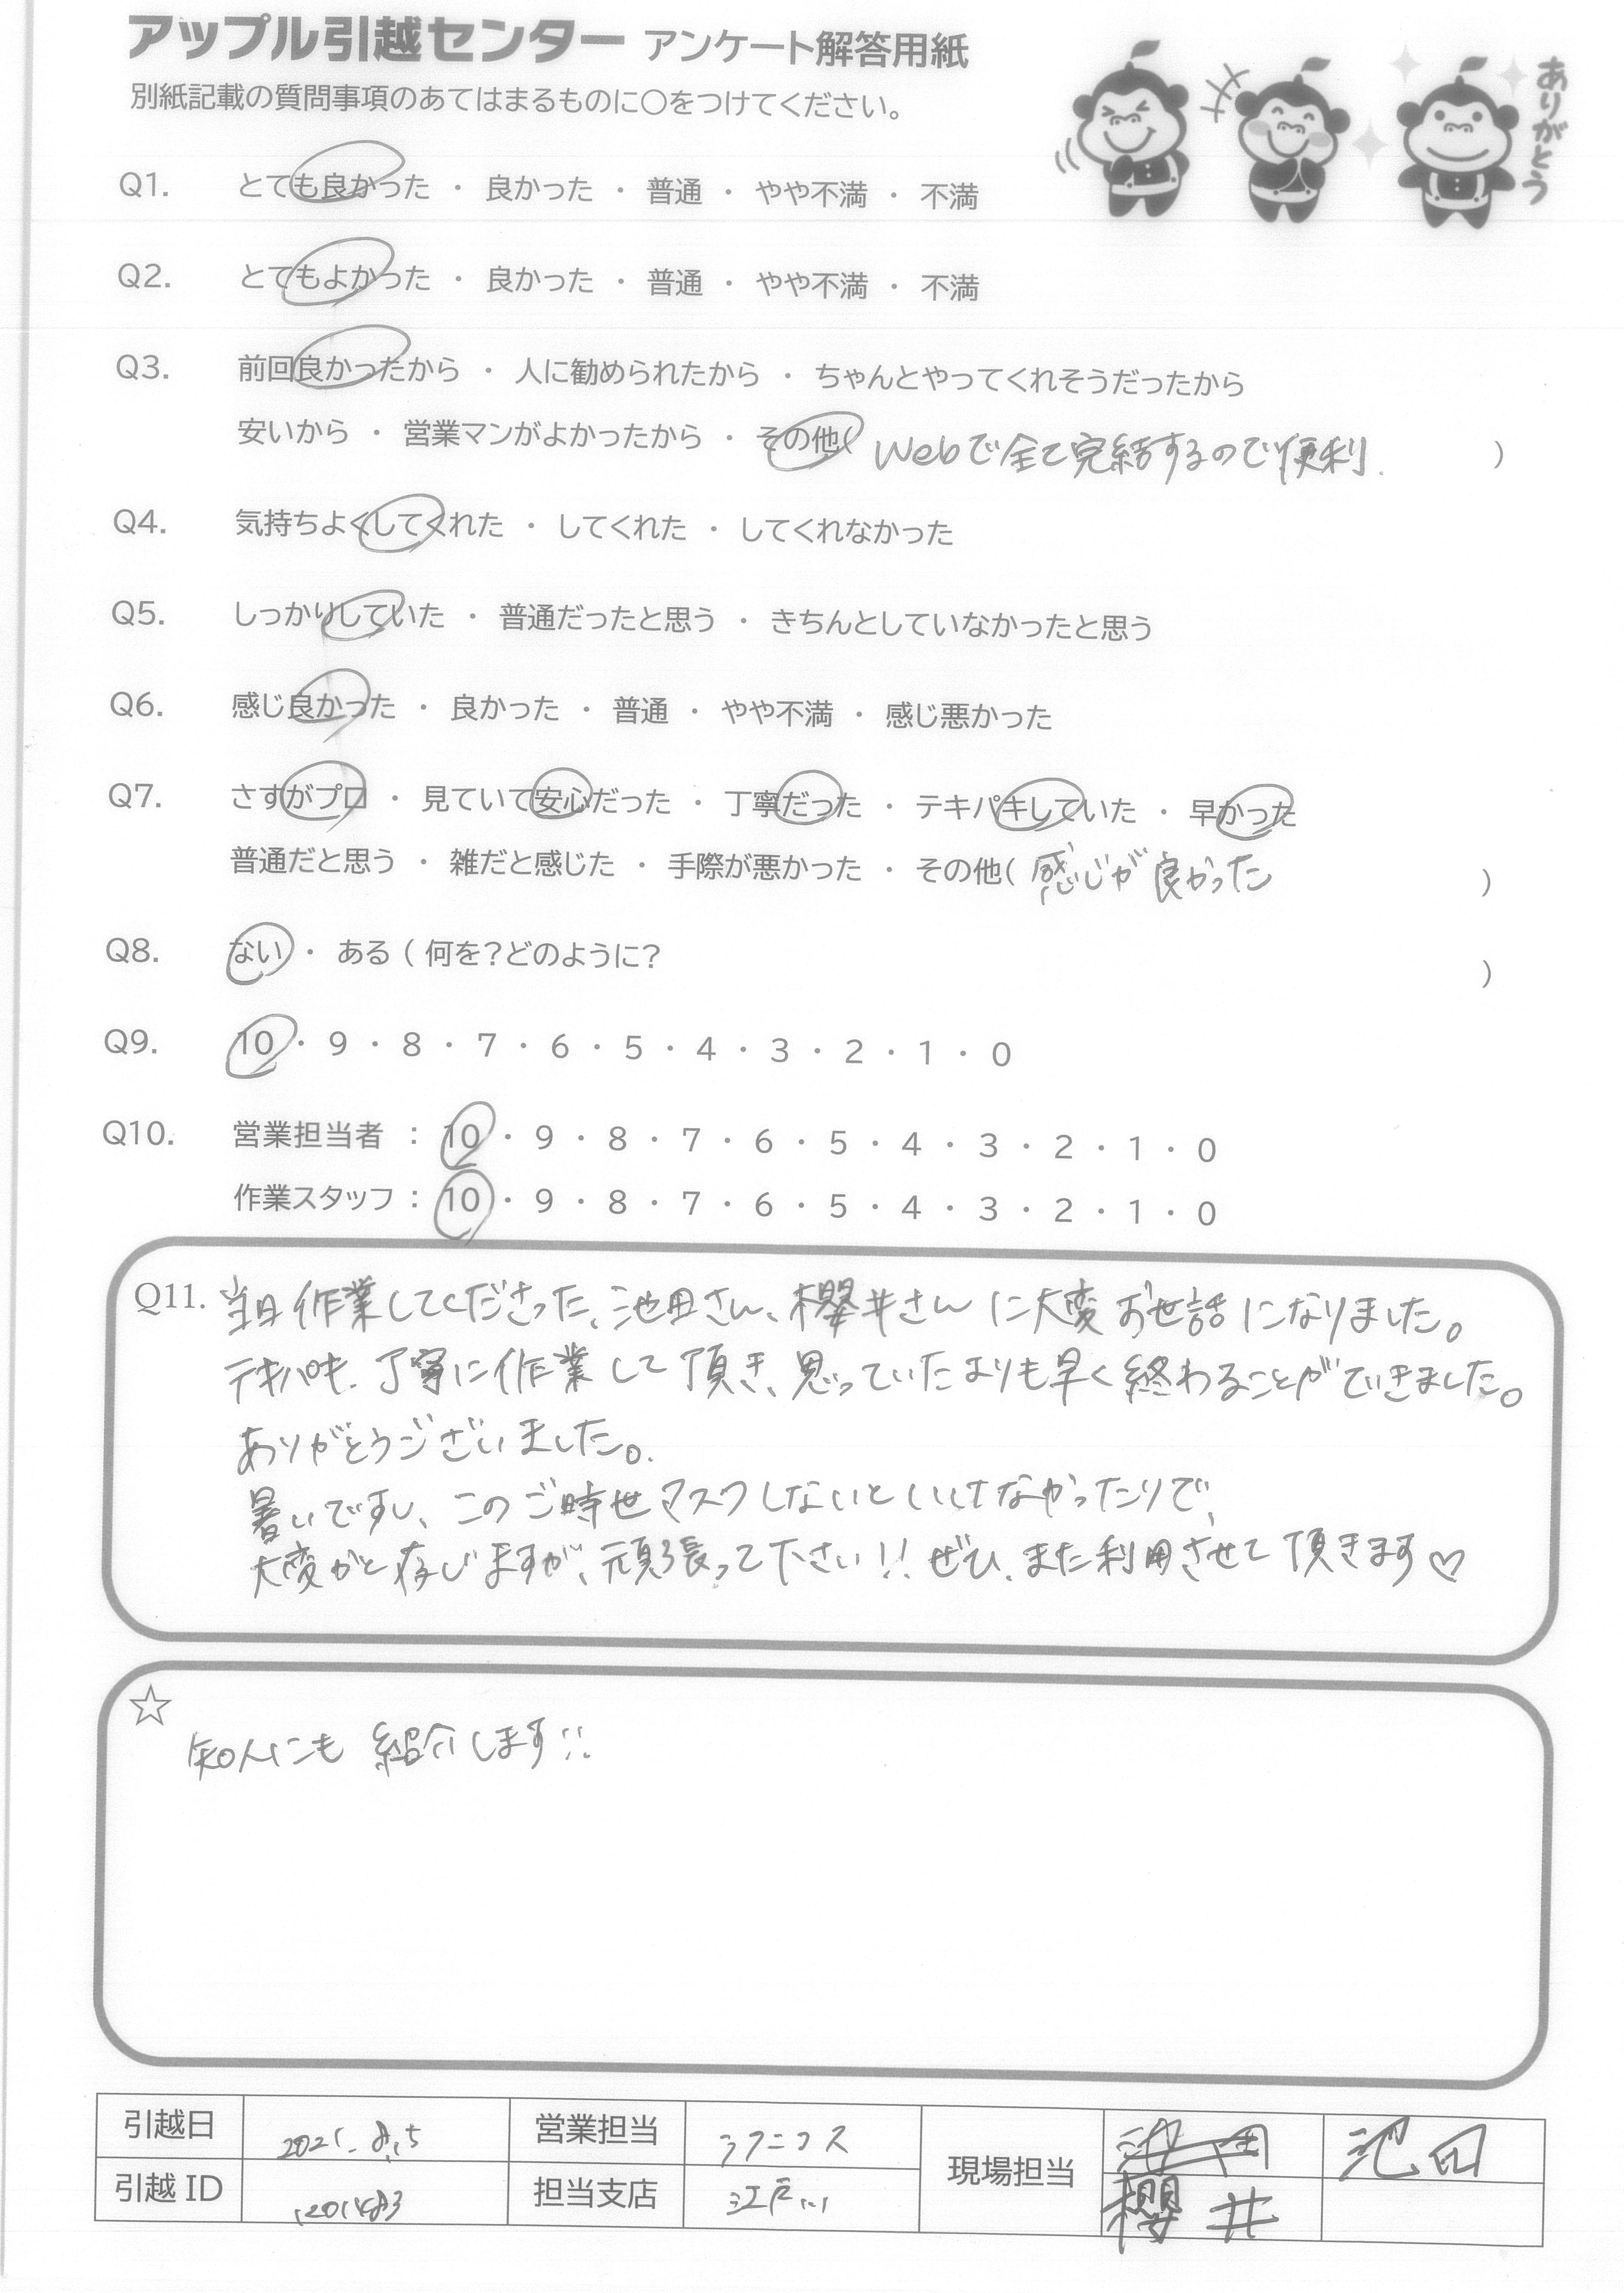 アップル引越センター アンケート解答用紙
別紙記載の質問事項のあてはまるものに○をつけてください。
ありがとう
Q1. とても良かった ・ 良かった ・ 普通 ・ やや不満 ・ 不満
Q2. とてもよかった ・ 良かった ・ 普通 ・ やや不満 ・ 不満
Q3. 前回良かったから ・ 人に勧められたから ・ ちゃんとやってくれそうだったから
安いから ・ 営業マンがよかったから ・ その他( Webで全て完結するので便利. )
Q4. 気持ちよくしてくれた ・ してくれた ・ してくれなかった
Q5. しっかりしていた ・ 普通だったと思う ・ きちんとしていなかったと思う
Q6. 感じ良かった ・ 良かった ・ 普通 ・ やや不満 ・ 感じ悪かった
Q7. さすがプロ ・ 見ていて安心だった ・ 丁寧だった ・ テキパキしていた ・ 早かった
普通だと思う ・ 雑だと感じた ・ 手際が悪かった ・ その他( 感じが良かった )
Q8. ない ・ ある ( 何を?どのように? )
Q9. 10 ・ 9 ・ 8 ・ 7 ・ 6 ・ 5 ・ 4 ・ 3 ・ 2 ・ 1 ・ 0
Q10. 営業担当者 : 10 ・ 9 ・ 8 ・ 7 ・ 6 ・ 5 ・ 4 ・ 3 ・ 2 ・ 1 ・ 0
作業スタッフ : 10 ・ 9 ・ 8 ・ 7 ・ 6 ・ 5 ・ 4 ・ 3 ・ 2 ・ 1 ・ 0
Q11. 当日作業してくださった、池田さん、櫻井さんに大変お世話になりました。
テキパキ、丁寧に作業して頂き、思っていたよりも早く終わることができました。
ありがとうございました。
暑いですし、このご時世マスクしないといけなかったりで、
大変かと存じますが、頑張って下さい!! ぜひ、また利用させて頂きます♡
☆
知人にも紹介します!!
引越日 2021.8.15 営業担当 ラクニコス 現場担当 池田 池田
引越ID 担当支店 江戸川 櫻井